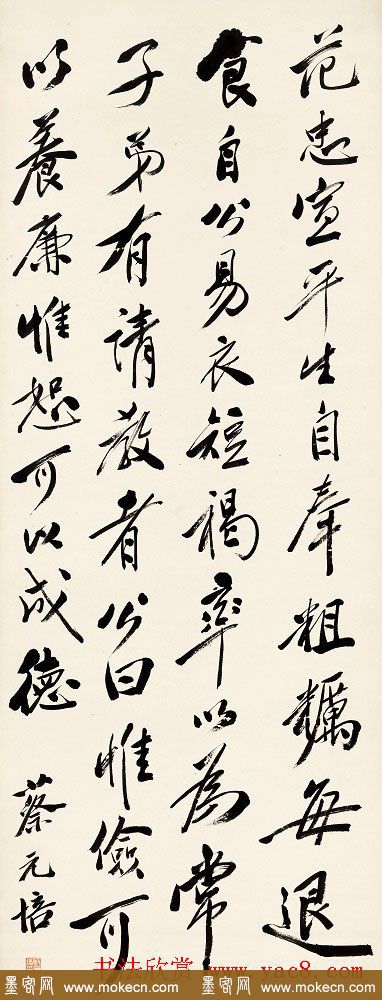 范忠宣平生自奉粗糲每退
食自公易衣短褐率以為常
子弟有請教者公曰惟儉可
以養廉惟恕可以成德
蔡元培
书法欣赏 www.yac8.com
墨客网 www.mokecn.com 墨客网 www.mokecn.com